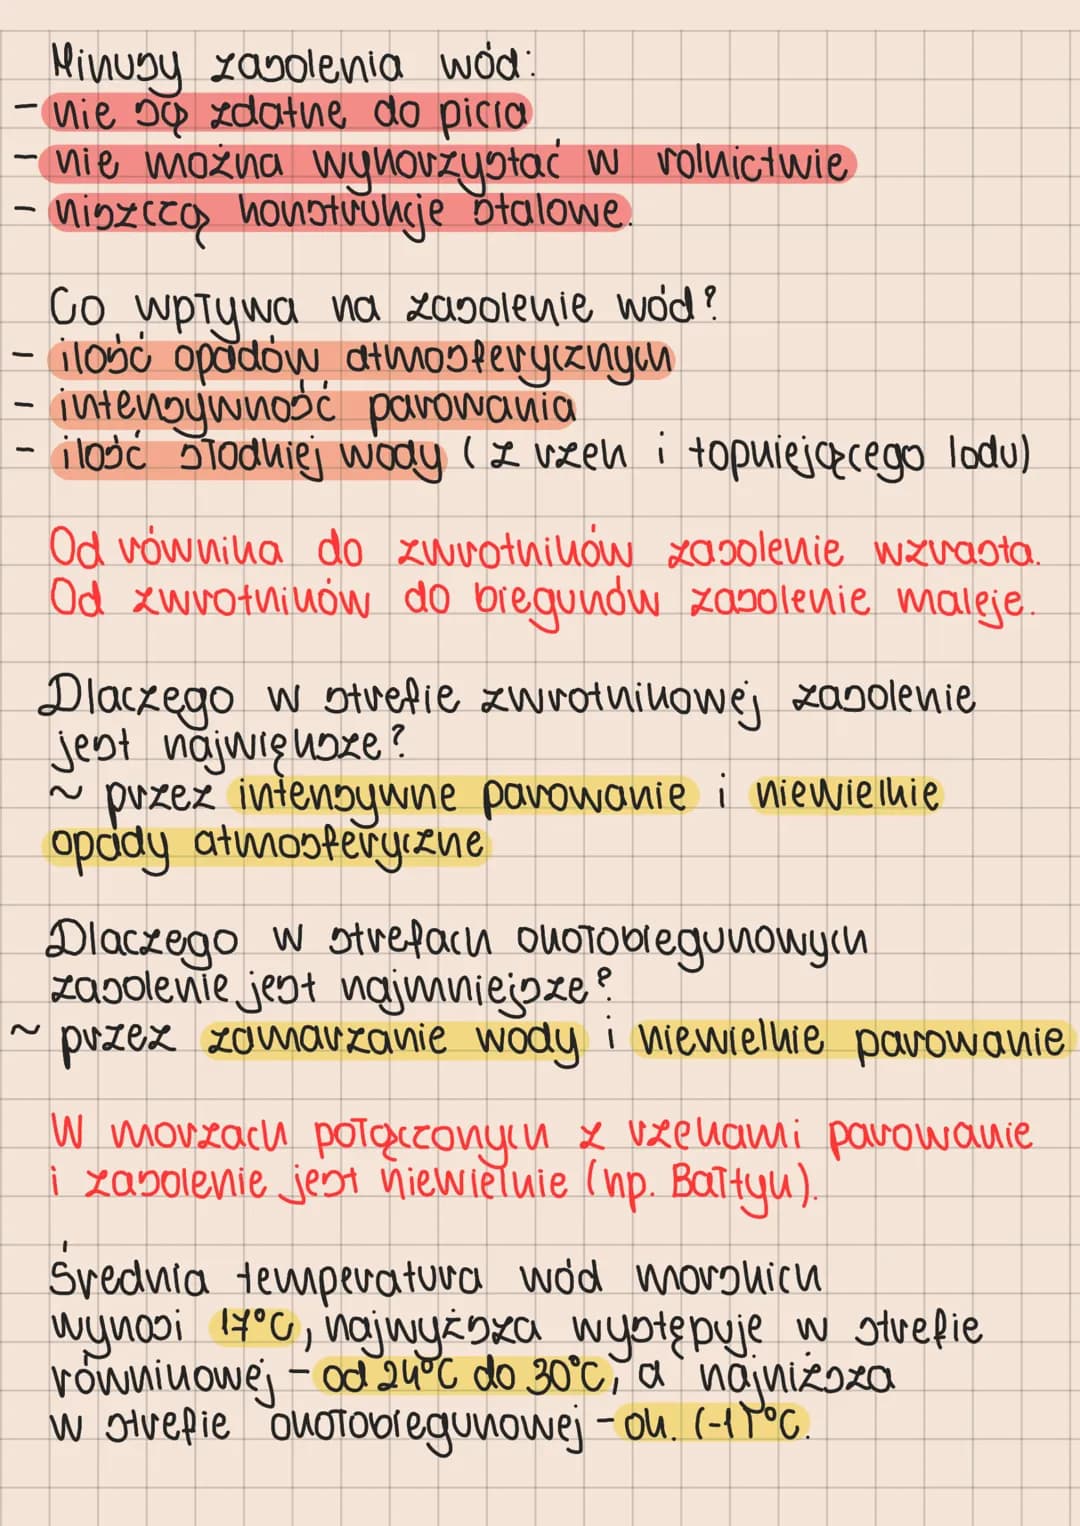 Minusy zasolenia wód:
- nie są zdatne do picia
- nie można wykorzystać w rolnictwie
- niszczą konstrukcje stalowe.
Co wpływa na zasolenie wód?
- ilość opadów atmosferycznych
- intensywność parowania
- ilość słodkiej wody (z rzek i topniejącego lodu)
Od równika do zwrotników zasolenie wzrasta.
Od zwrotników do biegunów zasolenie maleje.
Dlaczego w strefie zwrotnikowej zasolenie
jest największe?
~ przez intensywne parowanie i niewielkie
opady atmosferyczne
Dlaczego w strefach okołobiegunowych
zasolenie jest najmniejsze?
~ przez zamarzanie wody i niewielkie parowanie
W morzach połączonych z rzekami parowanie
i zasolenie jest niewielkie (np. Bałtyk).
Średnia temperatura wód morskich
wynosi 17°C, najwyższa występuje w strefie
równikowej - od 24°C do 30°C, a najniższa
w strefie okołobiegunowej - ok. (-1)°C.